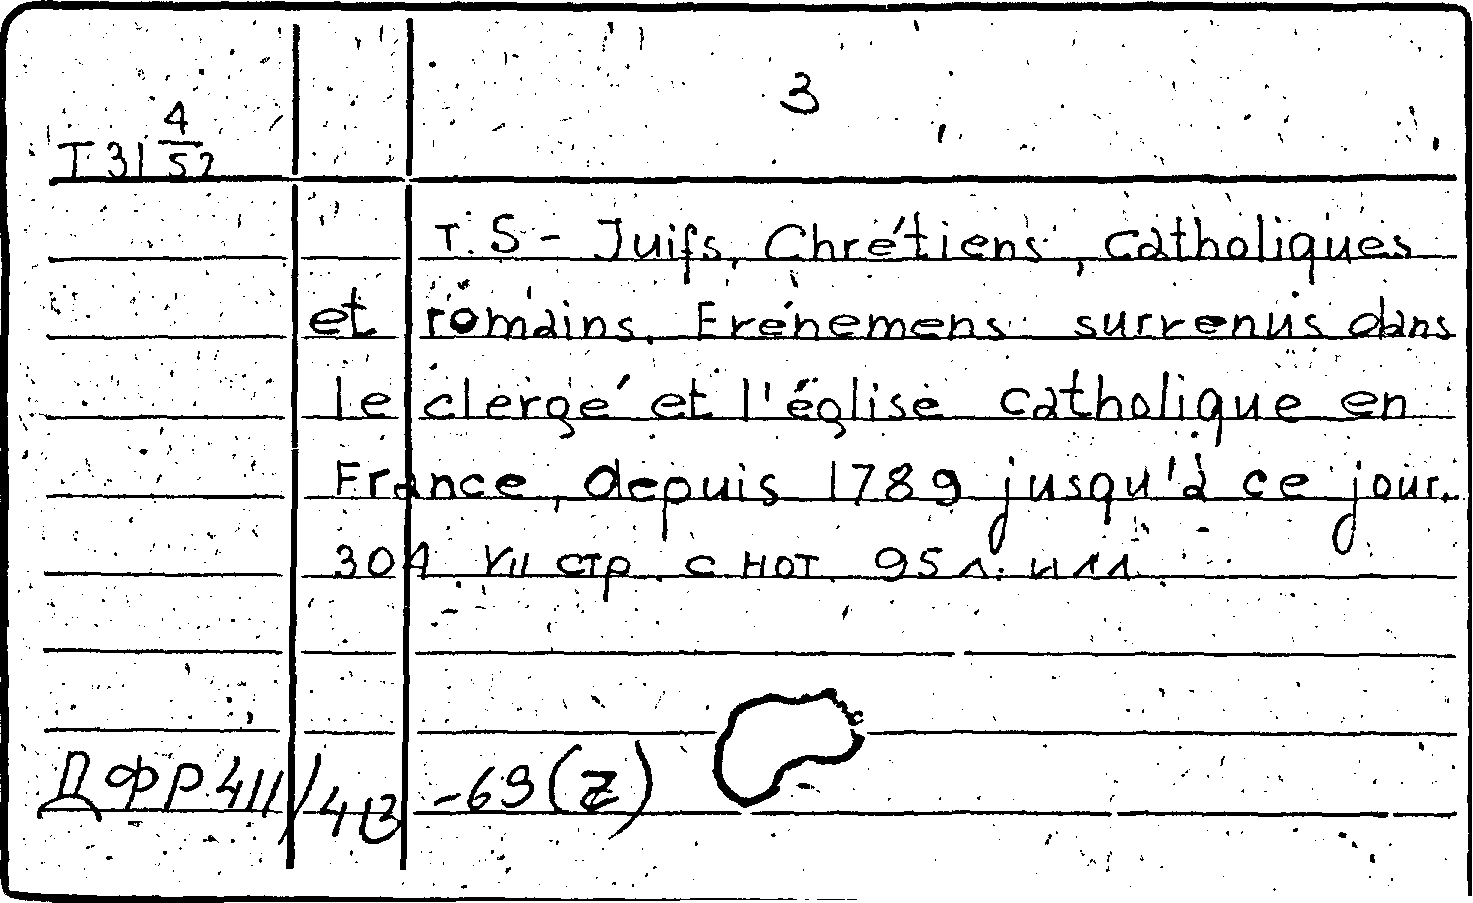 3
T31 4/52
T. 5 - Juifs, Chrétiens, catholiques
et romains. Erénemens surrenus dans
le clergé et l'église catholique en
France, depuis 1789 jusqu'à ce jour.
304 VII стр. с нот. 95 л. илл.
ДФР 411/413 -69 (z)